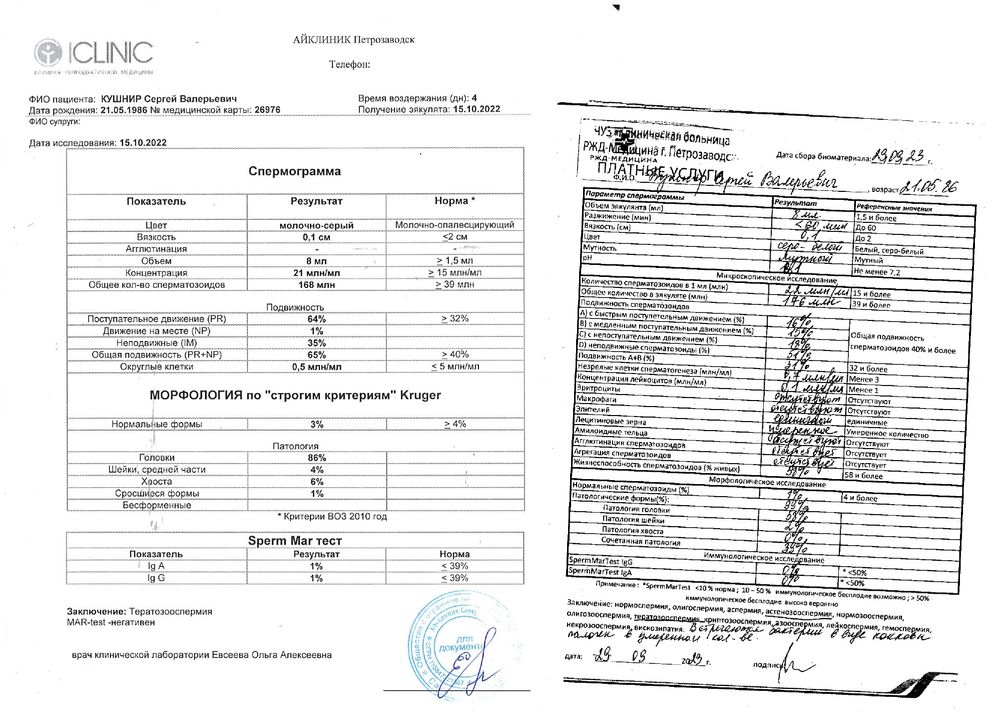 ICLINIC
КЛИНИКА РЕПРОДУКТИВНОЙ МЕДИЦИНЫ
АЙКЛИНИК Петрозаводск
Телефон:
ФИО пациента: КУШНИР Сергей Валерьевич Время воздержания (дн): 4
Дата рождения: 21.05.1986 № медицинской карты: 26976 Получение эякулята: 15.10.2022
ФИО супруги:
Дата исследования: 15.10.2022
Спермограмма
Показатель Результат Норма *
Цвет молочно-серый Молочно-опалесцирующий
Вязкость 0,1 см <2 см
Агглютинация - -
Объем 8 мл > 1,5 мл
Концентрация 21 млн/мл > 15 млн/мл
Общее кол-во сперматозоидов 168 млн > 39 млн
Подвижность
Поступательное движение (PR) 64% > 32%
Движение на месте (NP) 1%
Неподвижные (IM) 35%
Общая подвижность (PR+NP) 65% > 40%
Округлые клетки 0,5 млн/мл < 5 млн/мл
МОРФОЛОГИЯ по "строгим критериям" Kruger
Нормальные формы 3% > 4%
Патология
Головки 86%
Шейки, средней части 4%
Хвоста 6%
Сросшиеся формы 1%
Бесформенные
* Критерии ВОЗ 2010 год
Sperm Mar тест
Показатель Результат Норма
Ig A 1% < 39%
Ig G 1% < 39%
Заключение: Тератозооспермия
MAR-test -негативен
врач клинической лаборатории Евсеева Ольга Алексеевна
для
документов
ЧУЗ Клиническая больница
РЖД-Медицина г. Петрозаводск
РЖД-МЕДИЦИНА
ПЛАТНЫЕ УСЛУГИ
Дата сбора биоматериала: 29.09.23 г.
Ф.И.О. Кушнир Сергей Валерьевич, возраст 21.05.86
Параметр спермограммы Результат Референсные значения
Объем эякулянта (мл) 8 мл 1,5 и более
Разжижение (мин) <60 мин До 60
Вязкость (см) 0,1 До 2
Цвет серо-белый Белый, серо-белый
Мутность Мутный Мутный
pH Не менее 7,2
Микроскопическое исследование
Количество сперматозоидов в 1 мл (млн) 22 млн/мл 15 и более
Общее количество в эякуляте (млн) 176 млн 39 и более
Подвижность сперматозоидов
A) с быстрым поступательным движением (%) 16% Общая подвижность сперматозоидов 40% и более
B) с медленным поступательным движением (%) 15%
C) с непоступательным движением (%)
D) неподвижные сперматозоиды (%)
Подвижность A+B (%) 31% 32 и более
Незрелые клетки сперматогенеза (млн/мл) Менее 3
Концентрация лейкоцитов (млн/мл) 0,1 млн/мл Менее 1
Эритроциты отсутствуют Отсутствуют
Макрофаги отсутствуют Отсутствуют
Эпителий единичный единичные
Лецитиновые зерна умеренное Умеренное количество
Амилоидные тельца отсутствуют Отсутствуют
Агглютинация сперматозоидов отсутствует Отсутствует
Агрегация сперматозоидов отсутствует Отсутствует
Жизнеспособность сперматозоидов (% живых) 58 и более
Морфологическое исследование
Нормальные сперматозоиды (%) 1% 4 и более
Патологические формы(%): 99%
Патология головки 58%
Патология шейки 2%
Патология хвоста 0%
Сочетанная патология 39%
Иммунологическое исследование
SpermMarTest IgG 0% * <50%
SpermMarTest IgA 0% * <50%
Примечание: *SpermMarTest <10 % норма; 10 – 50 % иммунологическое бесплодие возможно; > 50%
иммунологическое бесплодие высоко вероятно
Заключение: нормоспермия, олигоспермия, аспермия, астенозооспермия, нормозооспермия,
олигозооспермия, тератозооспермия, криптозооспермия, азооспермия, лейкоспермия, гемоспермия,
некрозооспермия, вискозипатия. Встречаются бактерии в виде кокковых
палочек в умеренном кол-ве
дата: 29 09 2023г. подпись